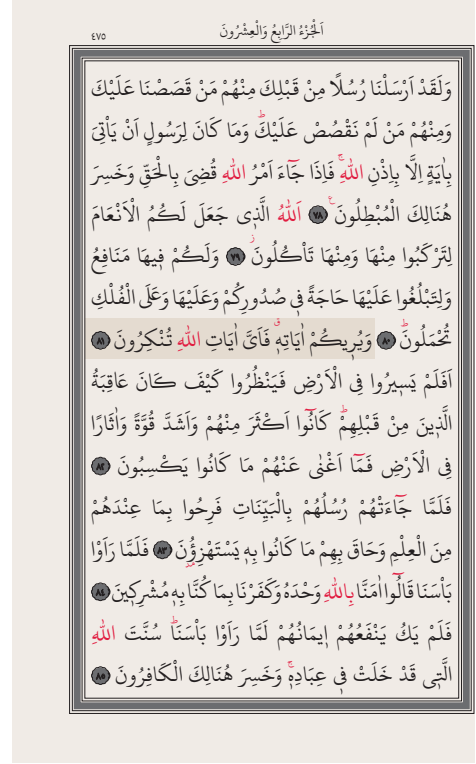 اَلْجُزْءُ الرَّابِعُ وَالْعِشْرُونَ
٤٧٥
وَلَقَدْ اَرْسَلْنَا رُسُلًا مِنْ قَبْلِكَ مِنْهُمْ مَنْ قَصَصْنَا عَلَيْكَ
وَمِنْهُمْ مَنْ لَمْ نَقْصُصْ عَلَيْكَۜ وَمَا كَانَ لِرَسُولٍ اَنْ يَأْتِيَ
بِاٰيَةٍ اِلَّا بِاِذْنِ اللّٰهِۚ فَاِذَا جَٓاءَ اَمْرُ اللّٰهِ قُضِيَ بِالْحَقِّ وَخَسِرَ
هُنَالِكَ الْمُبْطِلُونَ۟ ﴿٧٨﴾ اَللّٰهُ الَّذ۪ي جَعَلَ لَكُمُ الْاَنْعَامَ
لِتَرْكَبُوا مِنْهَا وَمِنْهَا تَأْكُلُونَۘ ﴿٧٩﴾ وَلَكُمْ ف۪يهَا مَنَافِعُ
وَلِتَبْلُغُوا عَلَيْهَا حَاجَةً ف۪ي صُدُورِكُمْ وَعَلَيْهَا وَعَلَى الْفُلْكِ
تُحْمَلُونَۜ ﴿٨٠﴾ وَيُر۪يكُمْ اٰيَاتِه۪ۗ فَاَيَّ اٰيَاتِ اللّٰهِ تُنْكِرُونَ ﴿٨١﴾
اَفَلَمْ يَس۪يرُوا فِي الْاَرْضِ فَيَنْظُرُوا كَيْفَ كَانَ عَاقِبَةُ
الَّذ۪ينَ مِنْ قَبْلِهِمْۜ كَانُٓوا اَكْثَرَ مِنْهُمْ وَاَشَدَّ قُوَّةً وَاٰثَارًا
فِي الْاَرْضِ فَمَٓا اَغْنٰى عَنْهُمْ مَا كَانُوا يَكْسِبُونَ ﴿٨٢﴾
فَلَمَّا جَٓاءَتْهُمْ رُسُلُهُمْ بِالْبَيِّنَاتِ فَرِحُوا بِمَا عِنْدَهُمْ
مِنَ الْعِلْمِ وَحَاقَ بِهِمْ مَا كَانُوا بِه۪ يَسْتَهْزِؤُ۫نَ ﴿٨٣﴾ فَلَمَّا رَاَوْا
بَأْسَنَا قَالُٓوا اٰمَنَّا بِاللّٰهِ وَحْدَهُ وَكَفَرْنَا بِمَا كُنَّا بِه۪ مُشْرِك۪ينَ ﴿٨٤﴾
فَلَمْ يَكُ يَنْفَعُهُمْ ا۪يمَانُهُمْ لَمَّا رَاَوْا بَأْسَنَاۜ سُنَّتَ اللّٰهِ
الَّت۪ي قَدْ خَلَتْ ف۪ي عِبَادِه۪ۚ وَخَسِرَ هُنَالِكَ الْكَافِرُونَ ﴿٨٥﴾